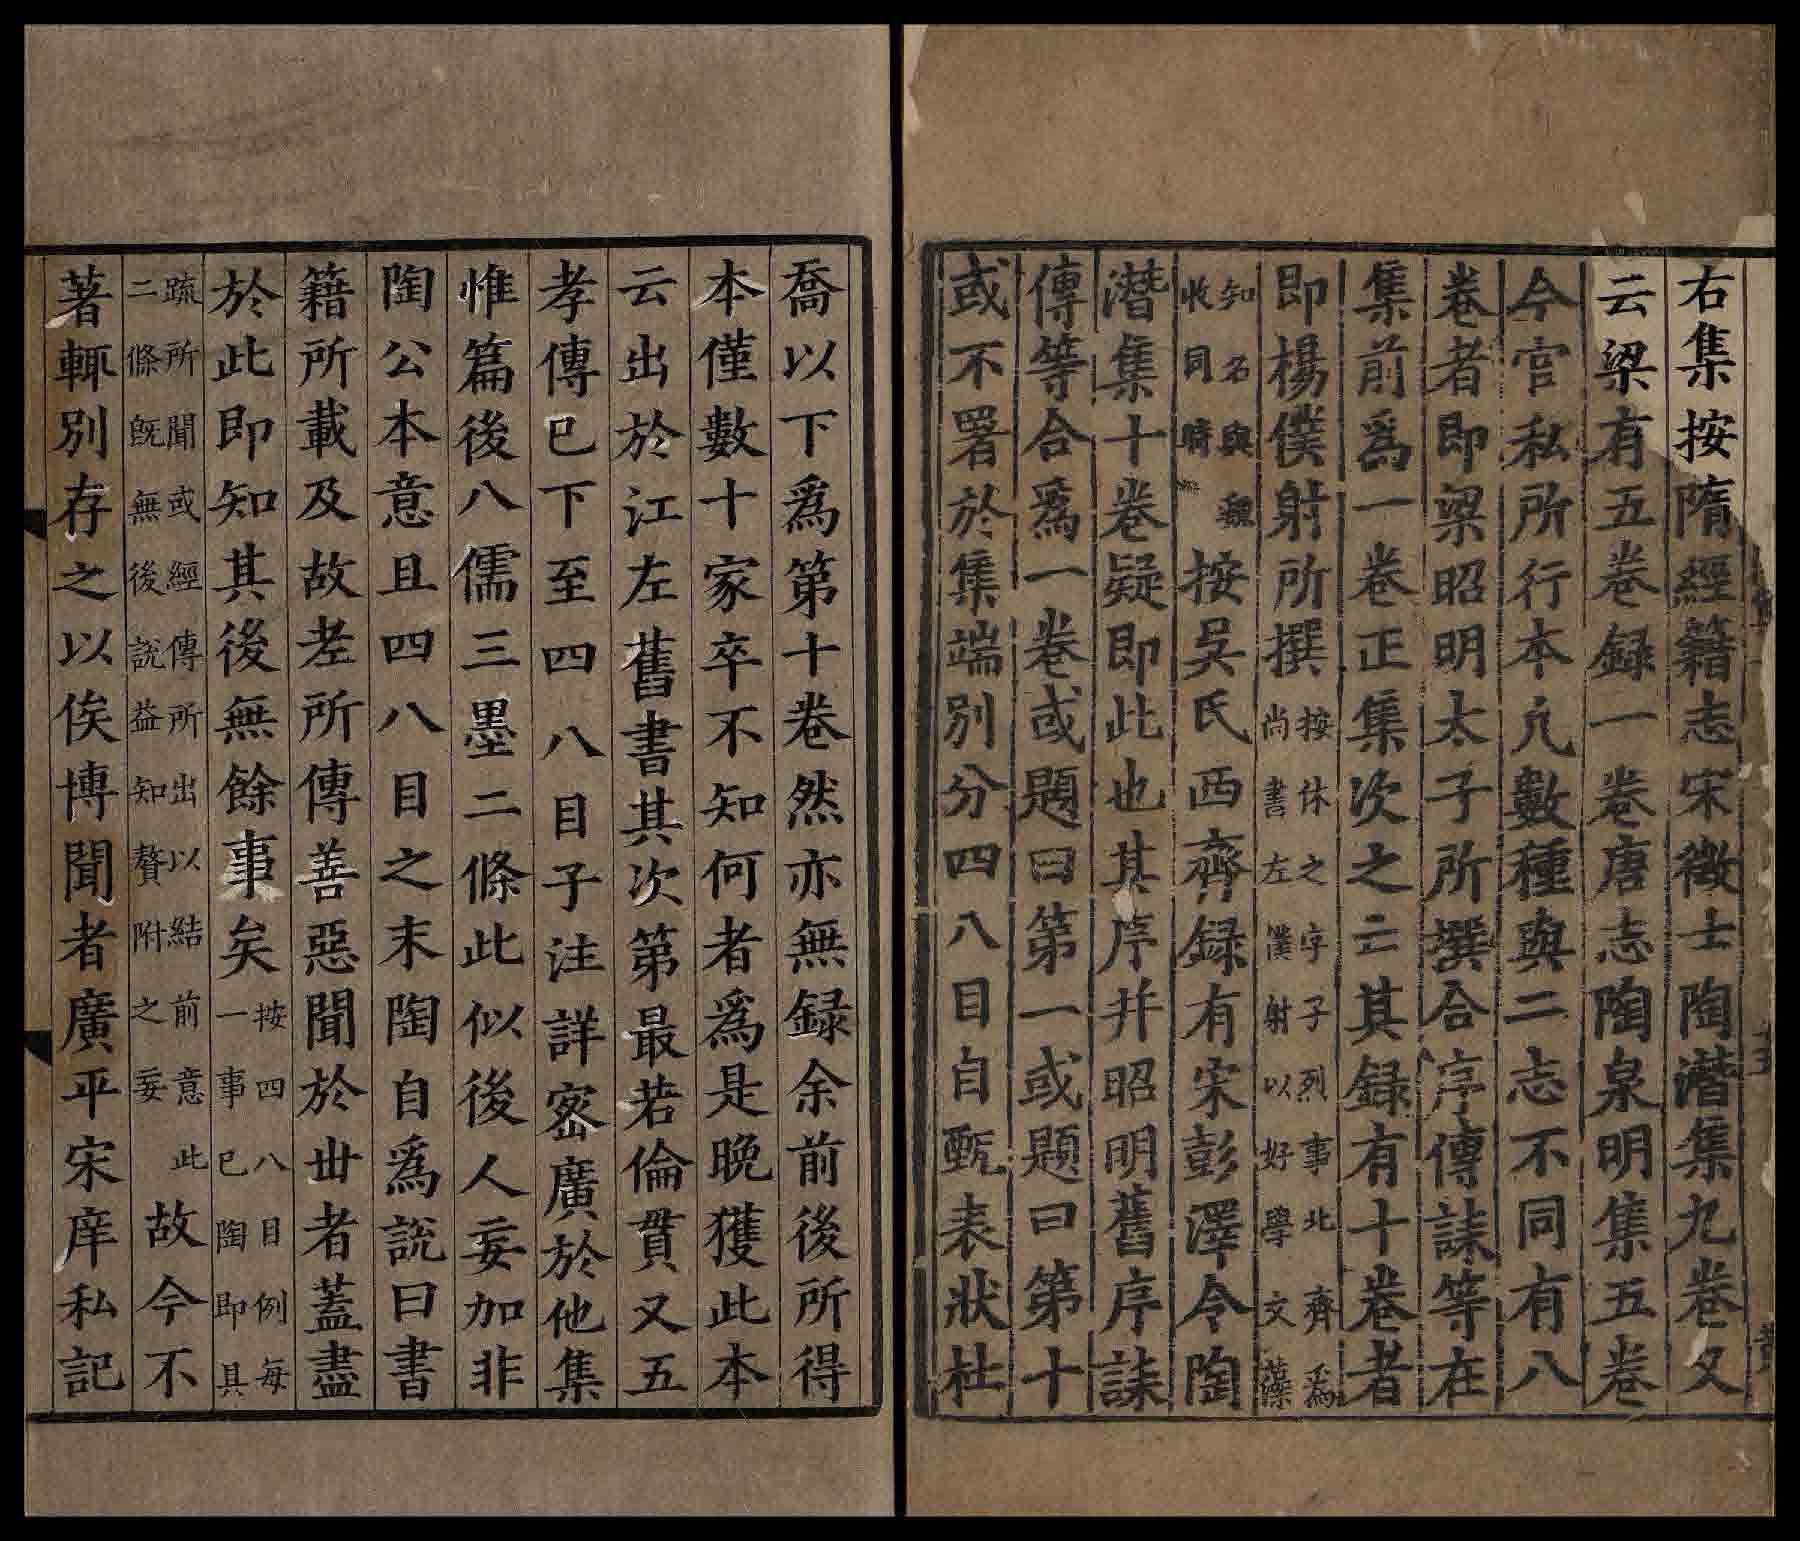 右集按隋經籍志宋徵士陶潛集九卷又
云梁有五卷録一卷唐志陶泉明集五卷
今官私所行本凡數種與二志不同有八
卷者即梁昭明太子所撰合序傳誄等在
集前爲一卷正集次之亡其録有十卷者
即楊僕射所撰按休之字子烈事北齊爲尚書左僕射以好學文藻
知名與魏收同時按吳氏西齋録有宋彭澤令陶
潛集十卷疑即此也其序并昭明舊序誄
傳等合爲一卷或題曰第一或題曰第十
或不署於集端別分四八目自甄表狀杜
喬以下爲第十卷然亦無録余前後所得
本僅數十家卒不知何者爲是晚獲此本
云出於江左舊書其次第最若倫貫又五
孝傳已下至四八目子注詳密廣於他集
惟篇後八儒三墨二條此似後人妄加非
陶公本意且四八目之末陶自爲說曰書
籍所載及故老所傳善惡聞於丗者蓋盡
於此即知其後無餘事矣按四八目例每一事已陶即具
疏所聞或經傳所出以結前意此二條旣無後說益知贅附之妄故今不
著輒別存之以俟博聞者廣平宋庠私記